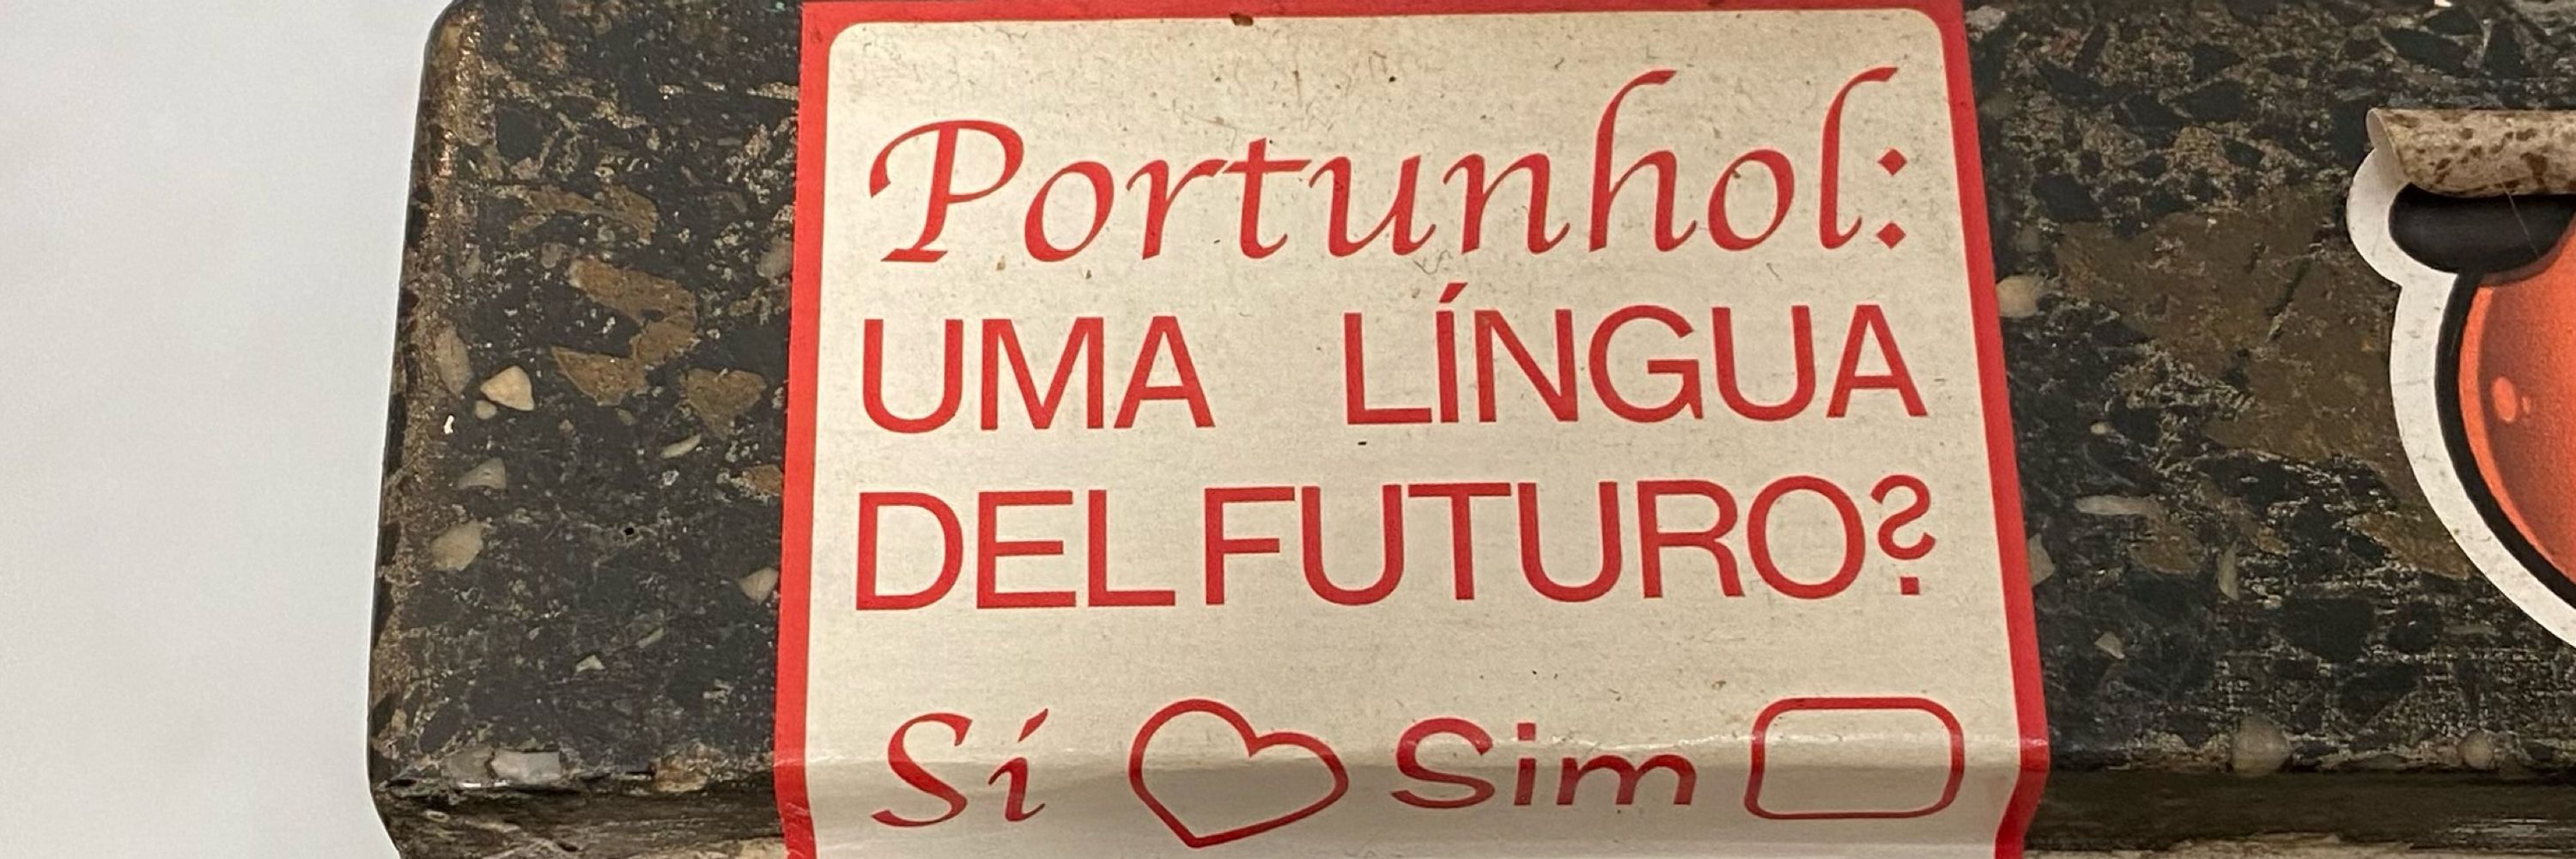 Portunhol:
UMA LÍNGUA
DEL FUTURO?
Sí Sim